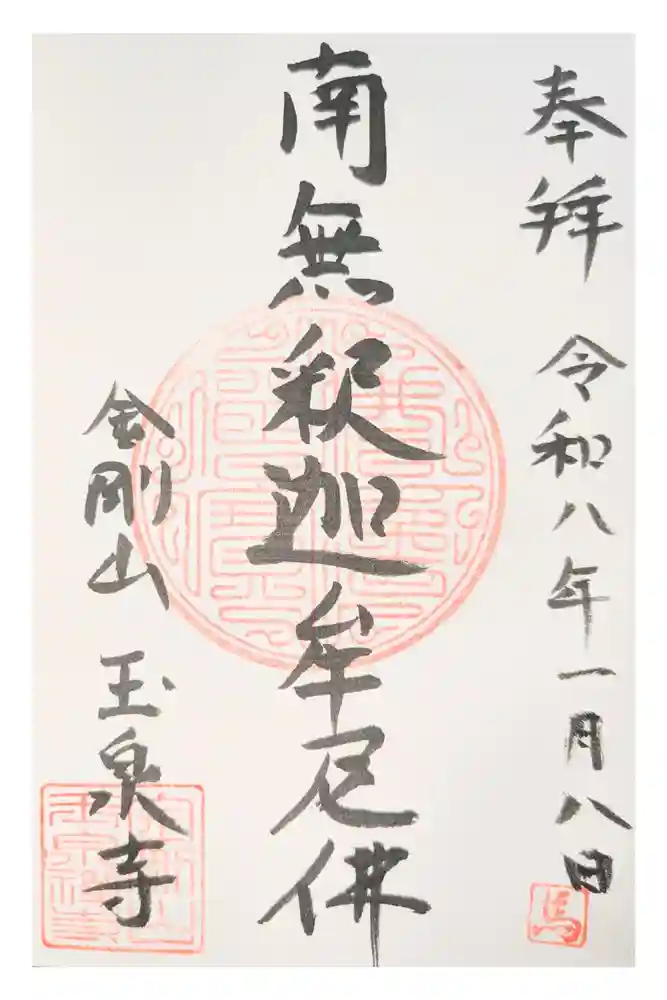 奉拝 令和八年一月八日
南無釈迦牟尼佛
金剛山 玉泉寺
馬